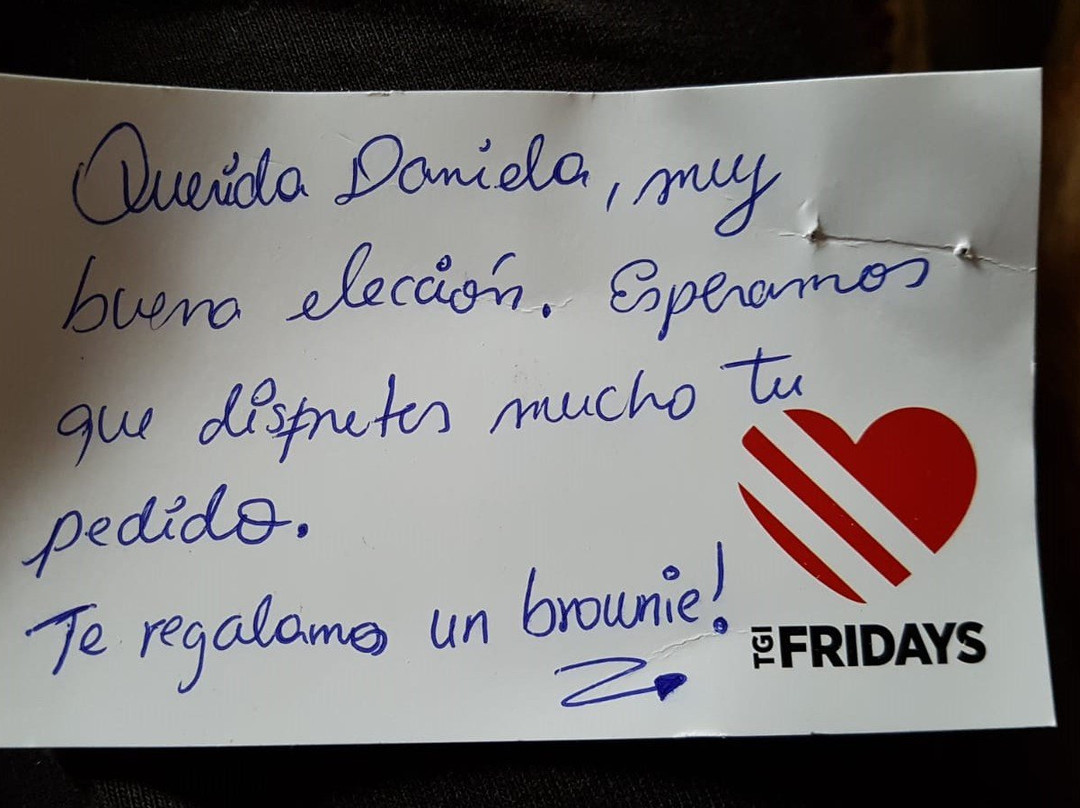 Querida Daniela, muy
buena elección. Esperamos
que disfrutes mucho tu
pedido.
Te regalamos un brownie!
TGI FRIDAYS